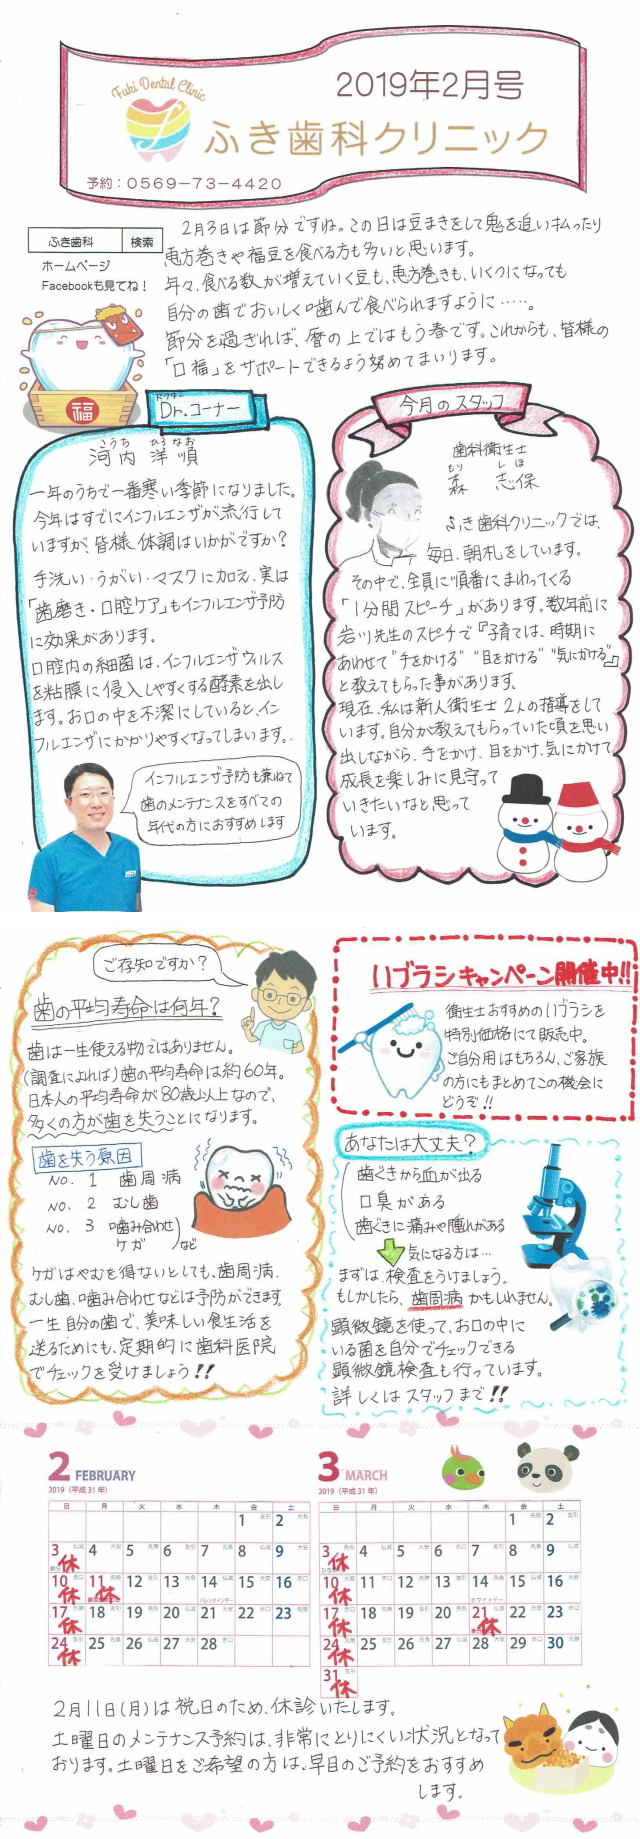 Fuki Dental Clinic
2019年2月号
ふき歯科クリニック
予約：0569-73-4420
ふき歯科 検索
ホームページ
Facebookも見てね！
2月3日は節分ですね。この日は豆まきをして鬼を追い払ったり
恵方巻きや福豆を食べる方も多いと思います。
年々、食べる数が増えていく豆も、恵方巻きも、いくつになっても
自分の歯でおいしく噛んで食べられますように……。
節分を過ぎれば、暦の上ではもう春です。これからも、皆様の
「口福」をサポートできるよう努めてまいります。
福
ドクター
Dr.コーナー
こうち ひろなお
河内 洋順
一年のうちで一番寒い季節になりました。
今年はすでにインフルエンザが流行して
いますが、皆様、体調はいかがですか？
手洗い・うがい・マスクに加え、実は
「歯磨き・口腔ケア」もインフルエンザ予防
に効果があります。
口腔内の細菌は、インフルエンザウィルス
を粘膜に侵入しやすくする酵素を出し
ます。お口の中を不潔にしていると、イン
フルエンザにかかりやすくなってしまいます。
インフルエンザ予防も兼ねて
歯のメンテナンスをすべての
年代の方におすすめします
今月のスタッフ
歯科衛生士
もり しほ
森 志保
ふき歯科クリニックでは、
毎日、朝礼をしています。
その中で、全員に順番にまわってくる
「1分間スピーチ」があります。数年前に
岩川先生のスピチで『子育ては、時期に
あわせて"手をかける""目をかける""気にかける"』
と教えてもらった事があります。
現在、私は新人衛生士2人の指導をして
います。自分が教えてもらっていた頃を思い
出しながら、手をかけ、目をかけ、気にかけて
成長を楽しみに見守って
いきたいなと思って
います。
ご存知ですか？
歯の平均寿命は何年？
歯は一生使える物ではありません。
（調査によれば）歯の平均寿命は約60年。
日本人の平均寿命が80歳以上なので、
多くの方が歯を失うことになります。
歯を失う原因
NO. 1 歯周病
NO. 2 むし歯
NO. 3 噛み合わせ
ケガ など
ケガはやむを得ないとしても、歯周病、
むし歯、噛み合わせなどは予防ができます。
一生自分の歯で、美味しい食生活を
送るためにも、定期的に歯科医院
でチェックを受けましょう!!
ハブラシキャンペーン開催中!!
衛生士おすすめのハブラシを
特別価格にて販売中。
ご自分用はもちろん、ご家族
の方にもまとめてこの機会に
どうぞ!!
あなたは大丈夫？
歯ぐきから血が出る
口臭がある
歯ぐきに痛みや腫れがある
気になる方は…
まずは、検査をうけましょう。
もしかしたら、歯周病かもしれません。
顕微鏡を使って、お口の中に
いる菌を自分でチェックできる
顕微鏡検査も行っています。
詳しくはスタッフまで!!
2 FEBRUARY
2019（平成31年）
日 月 火 水 木 金 土
1 2
3 休 4 5 6 7 8 9
10 休 11 休 12 13 14 15 16
バレンタインデー
17 休 18 19 20 21 22 23
24 休 25 26 27 28
3 MARCH
2019（平成31年）
日 月 火 水 木 金 土
1 2
3 休 4 5 6 7 8 9
10 休 11 12 13 14 15 16
ホワイトデー
17 休 18 19 20 21 休 22 23
24 休 25 26 27 28 29 30
31 休
2月11日（月）は祝日のため、休診いたします。
土曜日のメンテナンス予約は、非常にとりにくい状況となって
おります。土曜日をご希望の方は、早目のご予約をおすすめ
します。